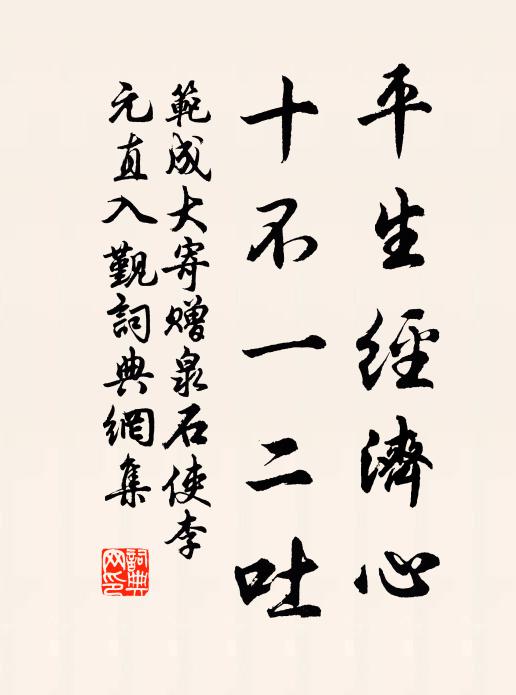 平生經濟心
十不一二吐
範成大寄贈泉石使李
元直入觀詞典網集
詞典网印